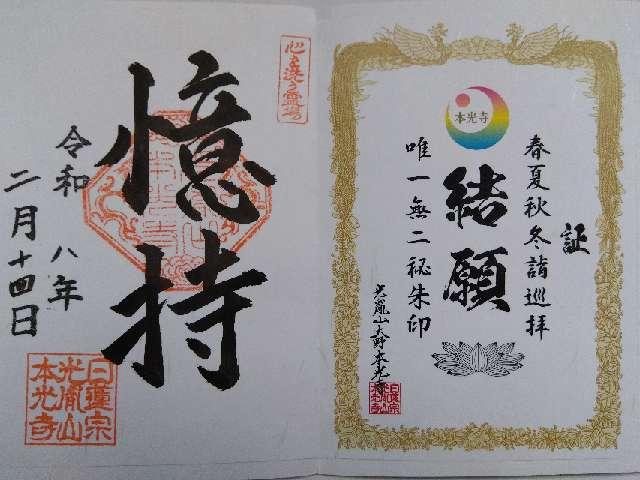 証
春夏秋冬詣巡拝
本光寺
結願
唯一無二秘朱印
光胤山大野本光寺
日蓮宗
光胤山
本光寺
心を洗う霊場
憶持
令和 八年
二月十四日
日蓮宗
光胤山
本光寺